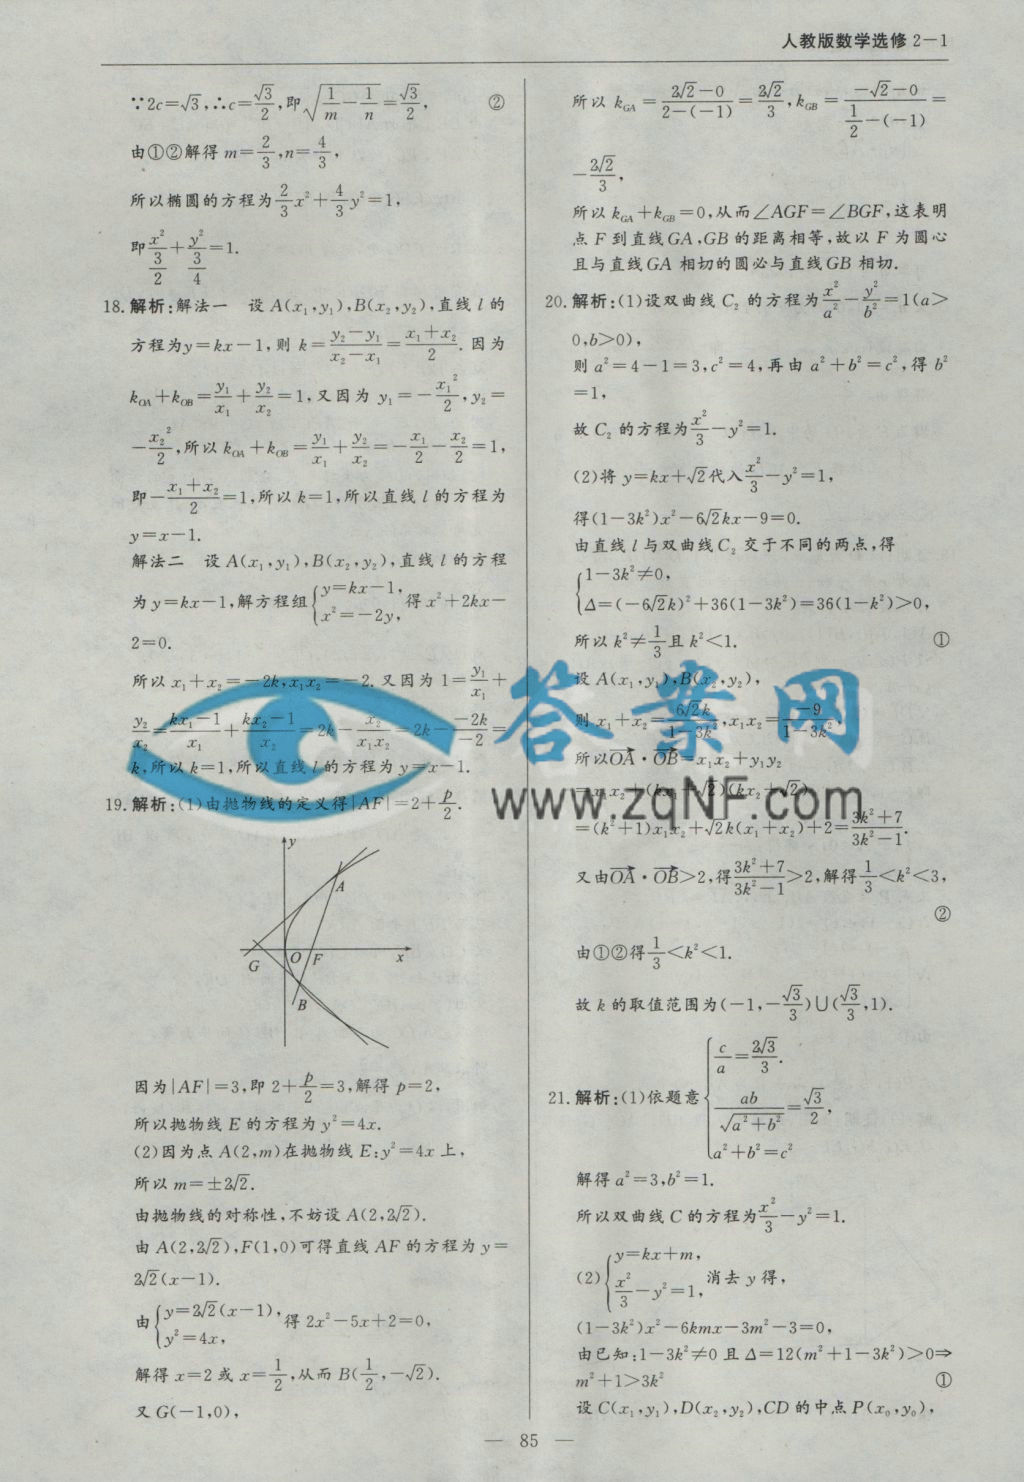 人教版数学选修2—1
∵2c=√3,∴c=√3/2,即√(1/m-1/n)=√3/2, ②
由①②解得m=2/3,n=4/3,
所以椭圆的方程为2/3x²+4/3y²=1,
即x²/(3/2)+y²/(3/4)=1.
18.解析:解法一 设A(x₁,y₁),B(x₂,y₂),直线l的
方程为y=kx-1,则k=(y₂-y₁)/(x₂-x₁)=(x₁+x₂)/2.因为
k_OA+k_OB=y₁/x₁+y₂/x₂=1,又因为y₁=-x₁²/2,y₂=
-x₂²/2,所以k_OA+k_OB=y₁/x₁+y₂/x₂=-x₁/2-x₂/2=1,
即-(x₁+x₂)/2=1,所以k=1,所以直线l的方程为
y=x-1.
解法二 设A(x₁,y₁),B(x₂,y₂),直线l的方程
为y=kx-1,解方程组{y=kx-1, x²=-2y,得x²+2kx-
2=0.
所以x₁+x₂=-2k,x₁x₂=-2.又因为1=y₁/x₁+
y₂/x₂=(kx₁-1)/x₁+(kx₂-1)/x₂=2k-
k,所以k=1,所以直线l的方程为y=x-1.
19.解析:(1)由抛物线的定义得|AF|=2+p/2.
y
A
G O F x
B
因为|AF|=3,即2+p/2=3,解得p=2,
所以抛物线E的方程为y²=4x.
(2)因为点A(2,m)在抛物线E:y²=4x上,
所以m=±2√2.
由抛物线的对称性,不妨设A(2,2√2).
由A(2,2√2),F(1,0)可得直线AF的方程为y=
2√2(x-1).
由{y=2√2(x-1), y²=4x,得2x²-5x+2=0,
解得x=2或x=1/2,从而B(1/2,-√2).
又G(-1,0),
所以k_GA=(2√2-0)/(2-(-1))=2√2/3,k_GB=(-√2-0)/(1/2-(-1))=
-2√2/3,
所以k_GA+k_GB=0,从而∠AGF=∠BGF,这表明
点F到直线GA,GB的距离相等,故以F为圆心
且与直线GA相切的圆必与直线GB相切.
20.解析:(1)设双曲线C₂的方程为x²/a²-y²/b²=1(a>
0,b>0),
则a²=4-1=3,c²=4,再由a²+b²=c²,得b²
=1,
故C₂的方程为x²/3-y²=1.
(2)将y=kx+√2代入x²/3-y²=1,
得(1-3k²)x²-6√2kx-9=0.
由直线l与双曲线C₂交于不同的两点,得
{1-3k²≠0,
Δ=(-6√2k)²+36(1-3k²)=36(1-k²)>0,
所以k²≠1/3且k²<1. ①
设A(x₁,y₁),B(x₂,y₂),
则x₁+x₂=6√2k/(1-3k²),x₁x₂=-9/(1-3k²),
所以OA→·OB→=x₁x₂+y₁y₂
=x₁x₂+(kx₁+√2)(kx₂+√2)
=(k²+1)x₁x₂+√2k(x₁+x₂)+2=(3k²+7)/(3k²-1).
又由OA→·OB→>2,得(3k²+7)/(3k²-1)>2,解得1/3<k²<3,
②
由①②得1/3<k²<1.
故k的取值范围为(-1,-√3/3)∪(√3/3,1).
21.解析:(1)依题意{c/a=2√3/3. ab/√(a²+b²)=√3/2, a²+b²=c²
解得a²=3,b²=1.
所以双曲线C的方程为x²/3-y²=1.
(2){y=kx+m, x²/3-y²=1,消去y得,
(1-3k²)x²-6kmx-3m²-3=0,
由已知:1-3k²≠0且Δ=12(m²+1-3k²)>0⇒
m²+1>3k² ①
设C(x₁,y₁),D(x₂,y₂),CD的中点P(x₀,y₀),
答案网
www.zqNF.com
— 85 —